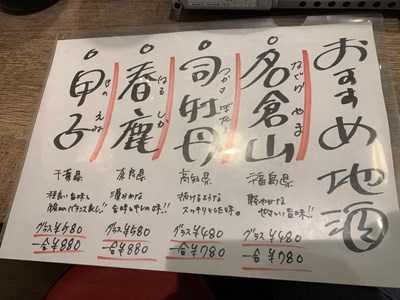 おすすめ地酒
名倉山
なぐら やま
福島県
軽やかな
やさしい旨味!!
グラス¥480
一合¥780
司牡丹
つかさ ぼたん
高知県
抜けるような
スッキリとした味。
グラス¥480
一合¥780
春鹿
はる しか
奈良県
旨味とキレの味!!
グラス¥580
一合¥880
甲子
きの えね
千葉県
グラス¥580
一合¥880